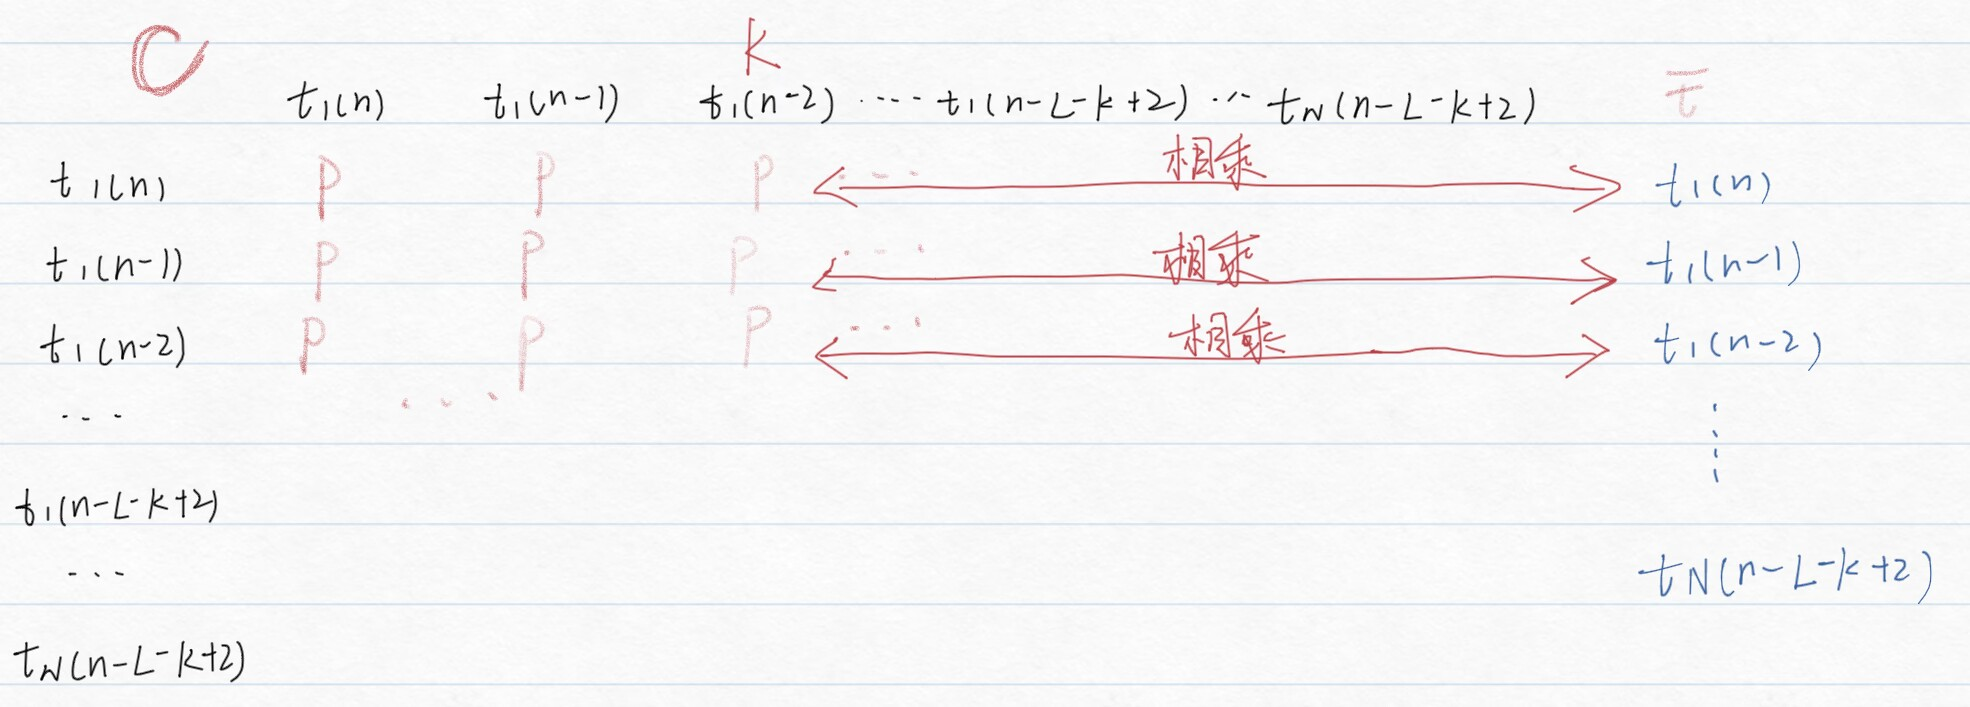 C K
t₁(n) t₁(n-1) t₁(n-2) ···· t₁(n-L-k+2) ··· t_N(n-L-k+2) t̄
t₁(n) P P P ··· 相乘 t₁(n)
t₁(n-1) P P P ··· 相乘 t₁(n-1)
t₁(n-2) P P P ··· 相乘 t₁(n-2)
··· ····
t₁(n-L-k+2)
··· t_N(n-L-k+2)
t_N(n-L-k+2)